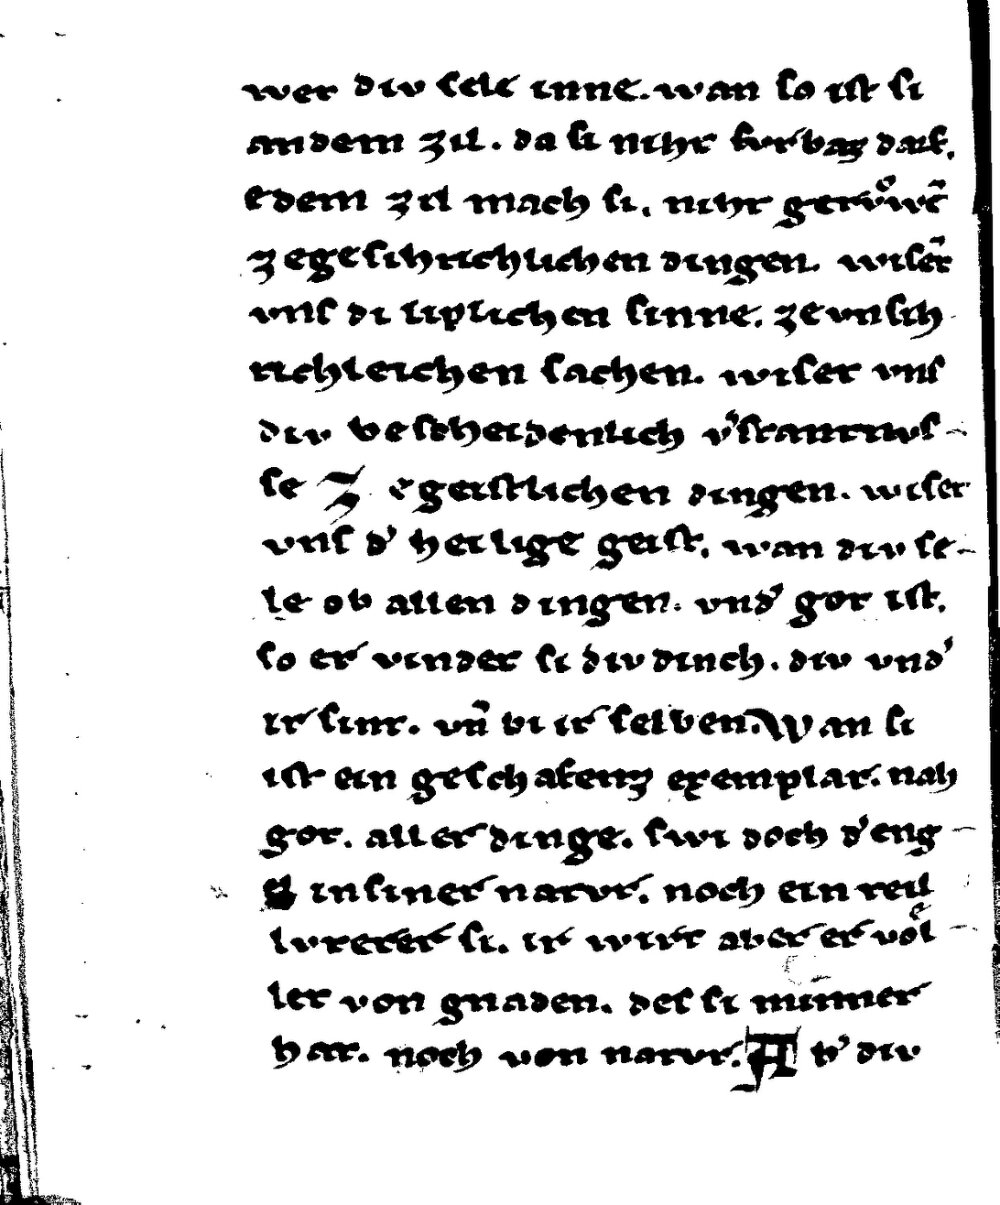 wer div sele inne. wan so ist si
an dem zil. da si niht furbaz darf.
e dem zil mach si. niht gerůwē
ze gesihtichlichen dingen. wiser̄
vns di liplichen sinne. ze vnsih
tichleichen sachen. wiset vns
div bescheidenlich v̓stantnus-
se Z e geistlichen dingen. wiset
vns d̓ heilige geist. wan div se-
le ob allen dingen. vnd̓ got ist.
so er vindet si div dinch. div vnd̓
ir sint. vn̄ bi ir selben. Wan si
ist ein geschafenz exemplar. nah
got. aller dinge. swi doch d̓ eng-
el in siner natvr. noch ein teil
lvterer si. ir wirt aber er voͤl-
ler von gnaden. des si nimmer
hat. noch von natvr. A b̓ div